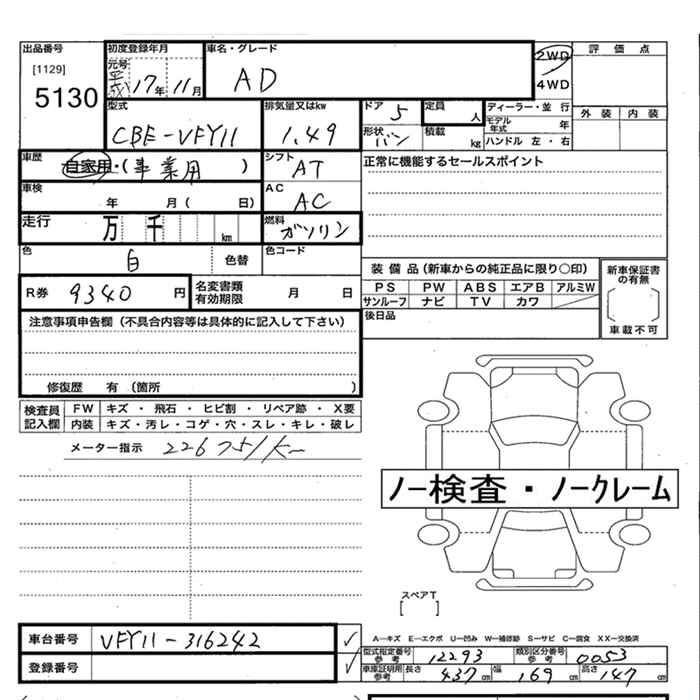 出品番号
[1129]
5130
初度登録年月
元号
平成 17年 11月
車名・グレード
AD
2WD
4WD
評価点
外装 内装
型式
CBE-VFY11
排気量又はkw
1.49
ドア 5
形状 バン
定員 人
積載 kg
ディーラー・並行
モデル年式 年
ハンドル 左・右
車歴
自家用・(事業用)
シフト
AT
正常に機能するセールスポイント
車検
年 月( 日)
AC
AC
走行
万 千 km
燃料
ガソリン
色
白
色替
色コード
R券 9340円
名変書類
有効期限 月 日
装備品(新車からの純正品に限り○印)
PS PW ABS エアB アルミW
サンルーフ ナビ TV カワ
新車保証書
の有無
車載不可
後日品
注意事項申告欄(不具合内容等は具体的に記入して下さい)
修復歴 有(箇所 )
検査員
記入欄
FW キズ・飛石・ヒビ割・リペア跡・X要
内装 キズ・汚レ・コゲ・穴・スレ・キレ・破レ
メーター指示
ノー検査・ノークレーム
スペアT
[ ]
A―キズ E―エクボ U―凹み W―補修跡 S―サビ C―腐食 XX―交換済
車台番号 VFY11-316242
登録番号
型式指定番号
参考 12293
類別区分番号
参考 0053
車庫証明用
参考
長さ 437cm 幅 169cm 高さ 147cm